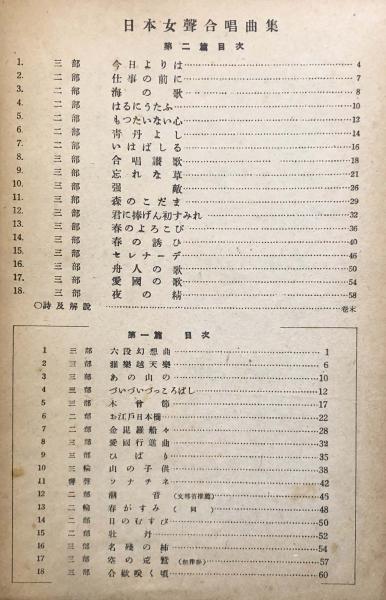 日本女聲合唱曲集
第二篇 目次
1. 三部 今日よりは 4
2. 二部 仕事の前に 7
3. 二部 海の歌 8
4. 二部 はるにうたふ 10
5. 二部 もつたいない心 12
6. 二部 青丹よし 14
7. 二部 いはばしる 16
8. 三部 合唱讃歌 18
9. 三部 忘れな草 21
10. 三部 强敵 26
11. 三部 森のこだま 29
12. 三部 君に捧げん初すみれ 32
13. 三部 春のよろこび 36
14. 三部 春の誘ひ 40
15. 三部 セレナーデ 46
16. 三部 舟人の歌 50
17. 三部 愛國の歌 54
18. 三部 夜の精 58
〇詩及解說 卷末
第一篇 目次
1 三部 六段幻想曲 1
2 三部 雅樂越天樂 6
3 三部 あの山の 10
4 三部 づいづいづつころばし 12
5 三部 木曾節 17
6 二部 お江戶日本橋 22
7 二部 金毘羅船々 28
8 三部 愛國行進曲 32
9 三部 ひばり 35
10 三輪 山の子供 38
11 ソナチネ 42
12 二部 潮音 (文部省推薦) 45
13 二輪 春がすみ (同) 48
14 二部 日のむすび 50
15 二部 牡丹 52
16 三部 名殘の柿 54
17 三部 空の荒鷲 57
18 三部 合歡咲く頃 60